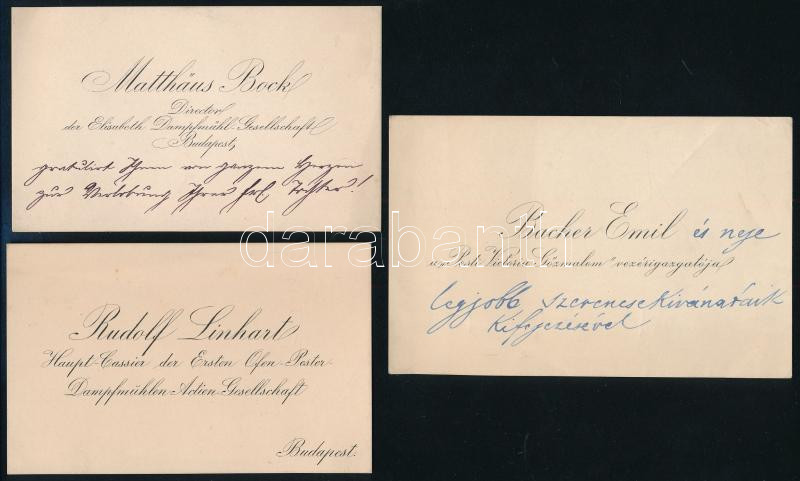 Matthäus Bock
Director
der Elisabeth Dampfmühl-Gesellschaft
Budapest,
gratulirt Ihnen von ganzem Herzen
zur Verlobung Ihrer Frl Tochter!
Rudolf Linhart
Haupt-Cassier der Ersten Ofen-Pester-
Dampfmühlen-Actien-Gesellschaft
Budapest.
Bacher Emil és neje
a „Pesti Victoria Gőzmalom" vezérigazgatója
legjobb szerencsekivánataik
kifejezésével
darabanth